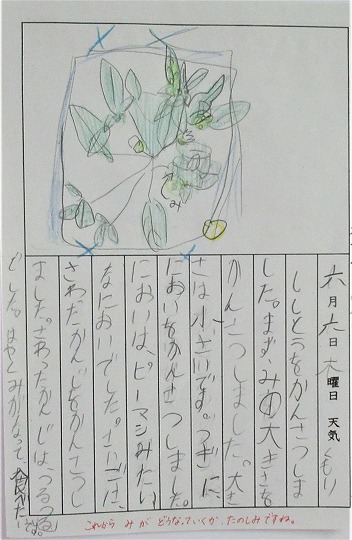 み
六月六日木曜日 天気 くもり
ししとうをかんさつしま
した。まず、みの大きさを
かんさつしました。大き
さは小さいです。つぎに、
においをかんさつしました。
においは、ピーマンみたい
なにおいでした。さいごは、
さわたかんじをかんさつし
ました。さわったかんじは、つるつる
でした。はやくみがなって、食べたいです。
これから みが どうなっていくか、たのしみですね。